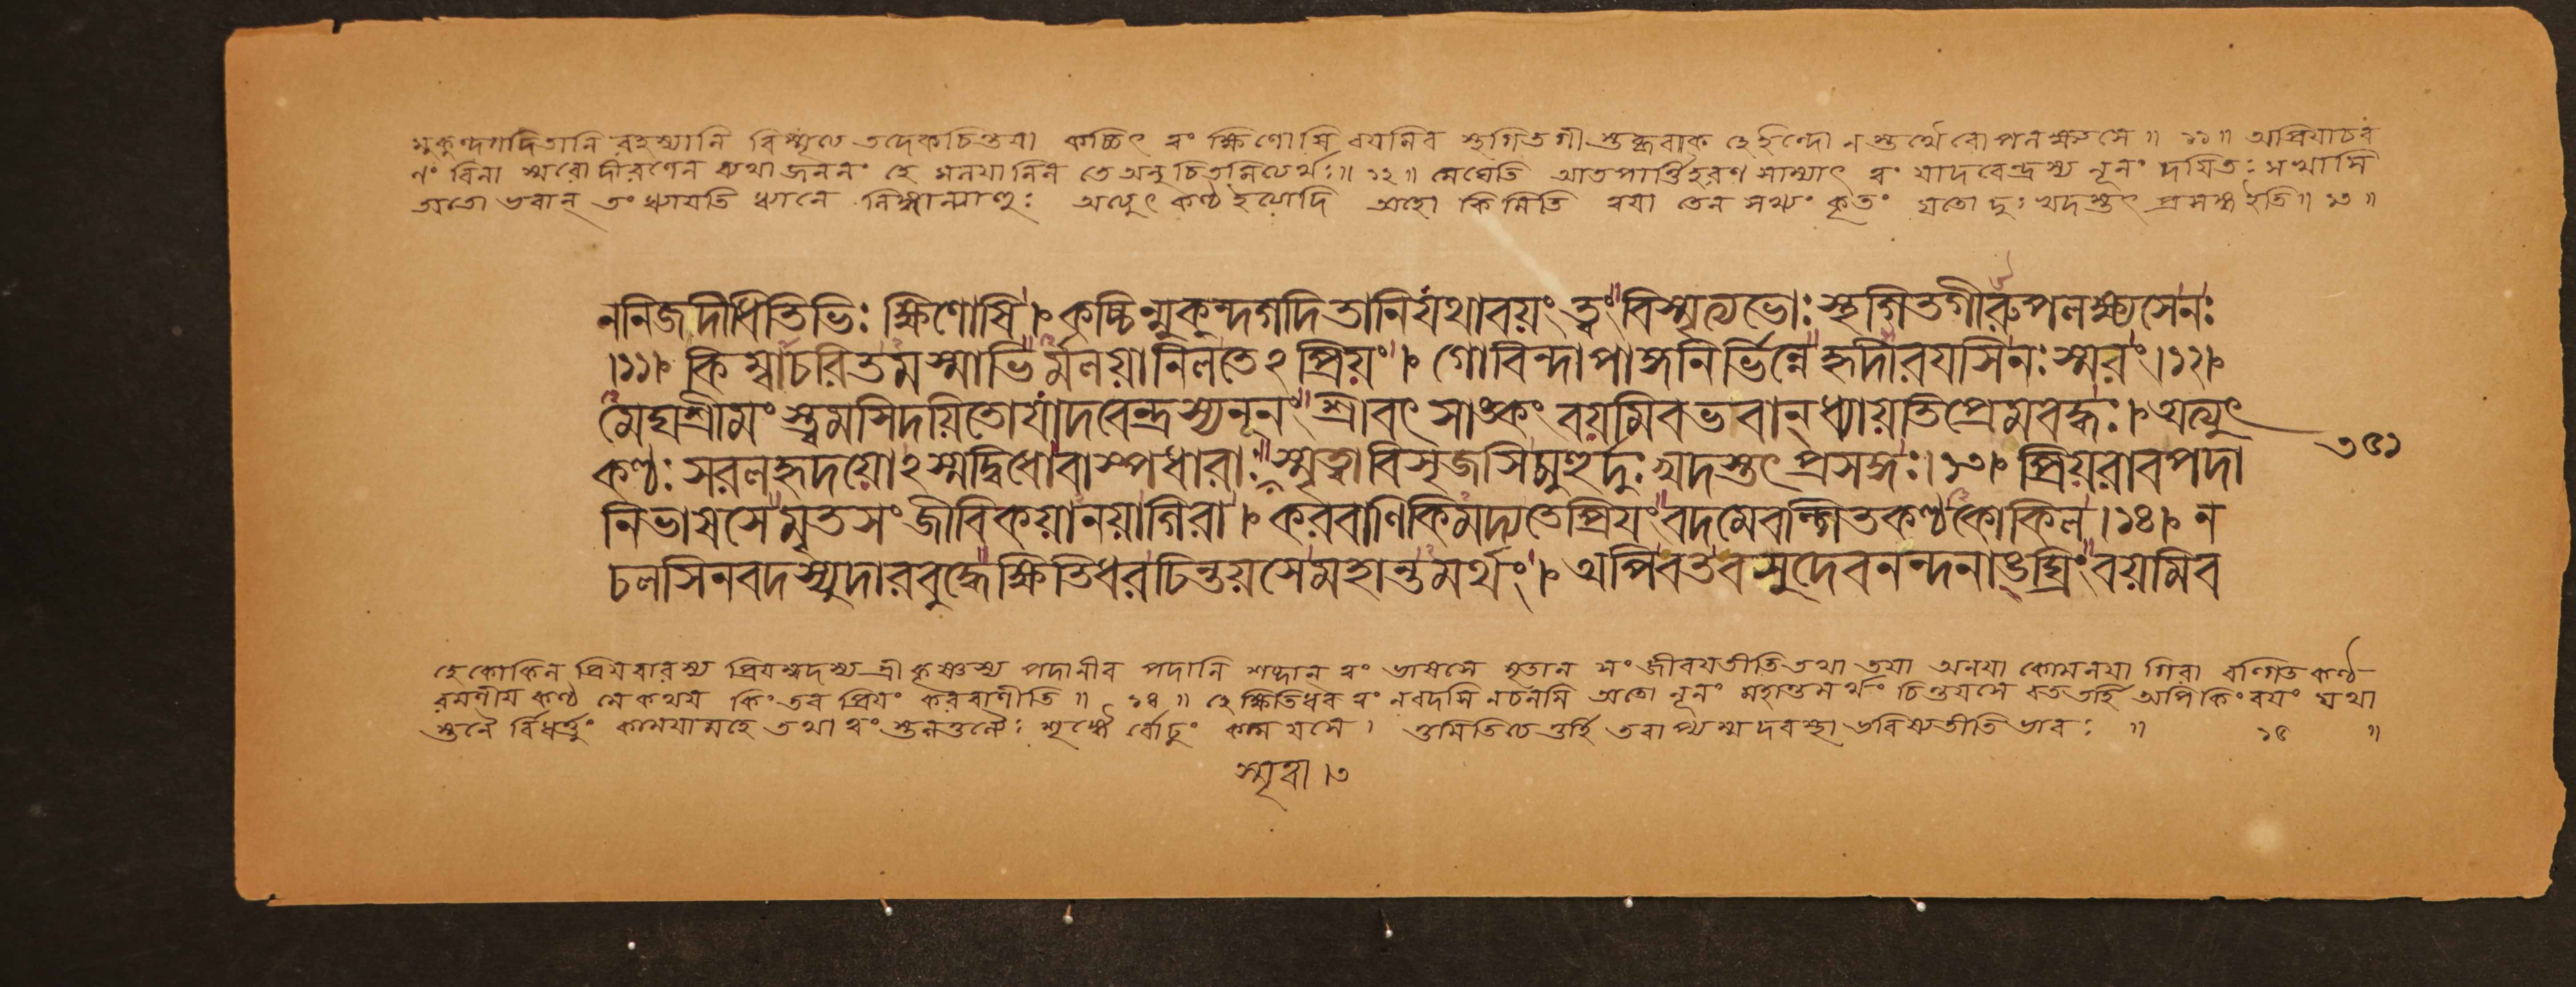 মুকুন্দগদিতানি রহস্যানি বিস্মৃত্য তদেকচিত্ততয়া কচ্চিৎ ত্বং ক্ষিণোষি বয়মিব স্থগিতগীঃ স্তব্ধবাক হেইন্দো নস্তর্থৈবোপলক্ষ্যসে ॥ ১১ ॥ অপ্রিয়াচর
ণং বিনা স্মরোদীরণেন ব্যথাজননং হে মলয়ানিল তে অনুচিতমিত্যর্থঃ ॥ ১২ ॥ মেঘেতি আতপার্ত্তিহরণ সাম্যাৎ ত্বং যাদবেন্দ্রস্য নূনং দয়িতঃ সখাসি
অতো ভবান্ তং ধ্যায়তি ধ্যানে লিঙ্গান্যাহুঃ অত্যুৎকণ্ঠ ইত্যাদি অহো কিমিতি ত্বয়া তেন সখ্যং কৃতং যতো দুঃখদস্তৎ প্রসঙ্গ ইতি ॥ ১৩ ॥
ননিজদীধিতিভিঃ ক্ষিণোষি । কচ্চিন্মুকুন্দগদিতানিযথাবয়ং ত্বং বিস্মৃত্যভোঃ স্থগিতগীরুপলক্ষ্যসেনঃ
। ১১ । কিম্বাচরিতমস্মাভির্মলয়ানিলতেঽপ্রিয়ং । গোবিন্দাপাঙ্গনির্ভিন্নে হৃদীরযসিনঃ স্মরং । ১২ ।
মেঘশ্রীমংস্ত্বমসিদয়িতোযাদবেন্দ্রস্যনূনং শ্রীবৎসাঙ্কং বয়মিবভবান্ধ্যায়তিপ্রেমবদ্ধঃ । অত্যুৎ
৩৫১
কণ্ঠঃ সরলহৃদয়োঽস্মদ্বিধোবাস্পধারাঃ স্মৃত্বাবিসৃজসিমুহুর্দুঃখদস্তৎপ্রসঙ্গঃ । ১৩ । প্রিয়রাবপদা
নিভাষসেমৃতসংজীবিকয়ানয়াগিরা । করবাণিকিমদ্যতেপ্রিয়ং বদমেবল্গিতকণ্ঠকোকিল । ১৪ । ন
চলসিনবদস্যুদারবুদ্ধেক্ষিতিধরচিন্তয়সেমহান্তমর্থং । অপিবতবসুদেবনন্দনাঙ্ঘ্রিং বয়মিব
হেকোকিল প্রিয়রাবস্য প্রিয়ম্বদস্য শ্রীকৃষ্ণস্য পদানীব পদানি শব্দান্ ত্বং ভাষসে মৃতান্ সংজীবয়তীতি তথা তয়া অনয়া কোমলয়া গিরা বল্গিতকণ্ঠ
রমণীয়কণ্ঠ মে কথয় কিং তব প্রিয়ং করবাণীতি ॥ ১৪ ॥ হে ক্ষিতিধর ত্বং নবদসি নচলসি অতো নূনং মহান্তমর্থং চিন্তয়সে বত তর্হি অপি কিং বয়ং যথা
স্তনৈর্বিধর্ত্তুং কাময়ামহে তথা ত্বং স্তনতুল্যৈঃ শৃঙ্গৈর্বোঢুং কাময়সে । ওমিতিচেত্তর্হি তবাপ্যস্মদবস্থা ভবিষ্যতীতিভাবঃ ॥ ১৫ ॥
স্মৃত্বা । ৩